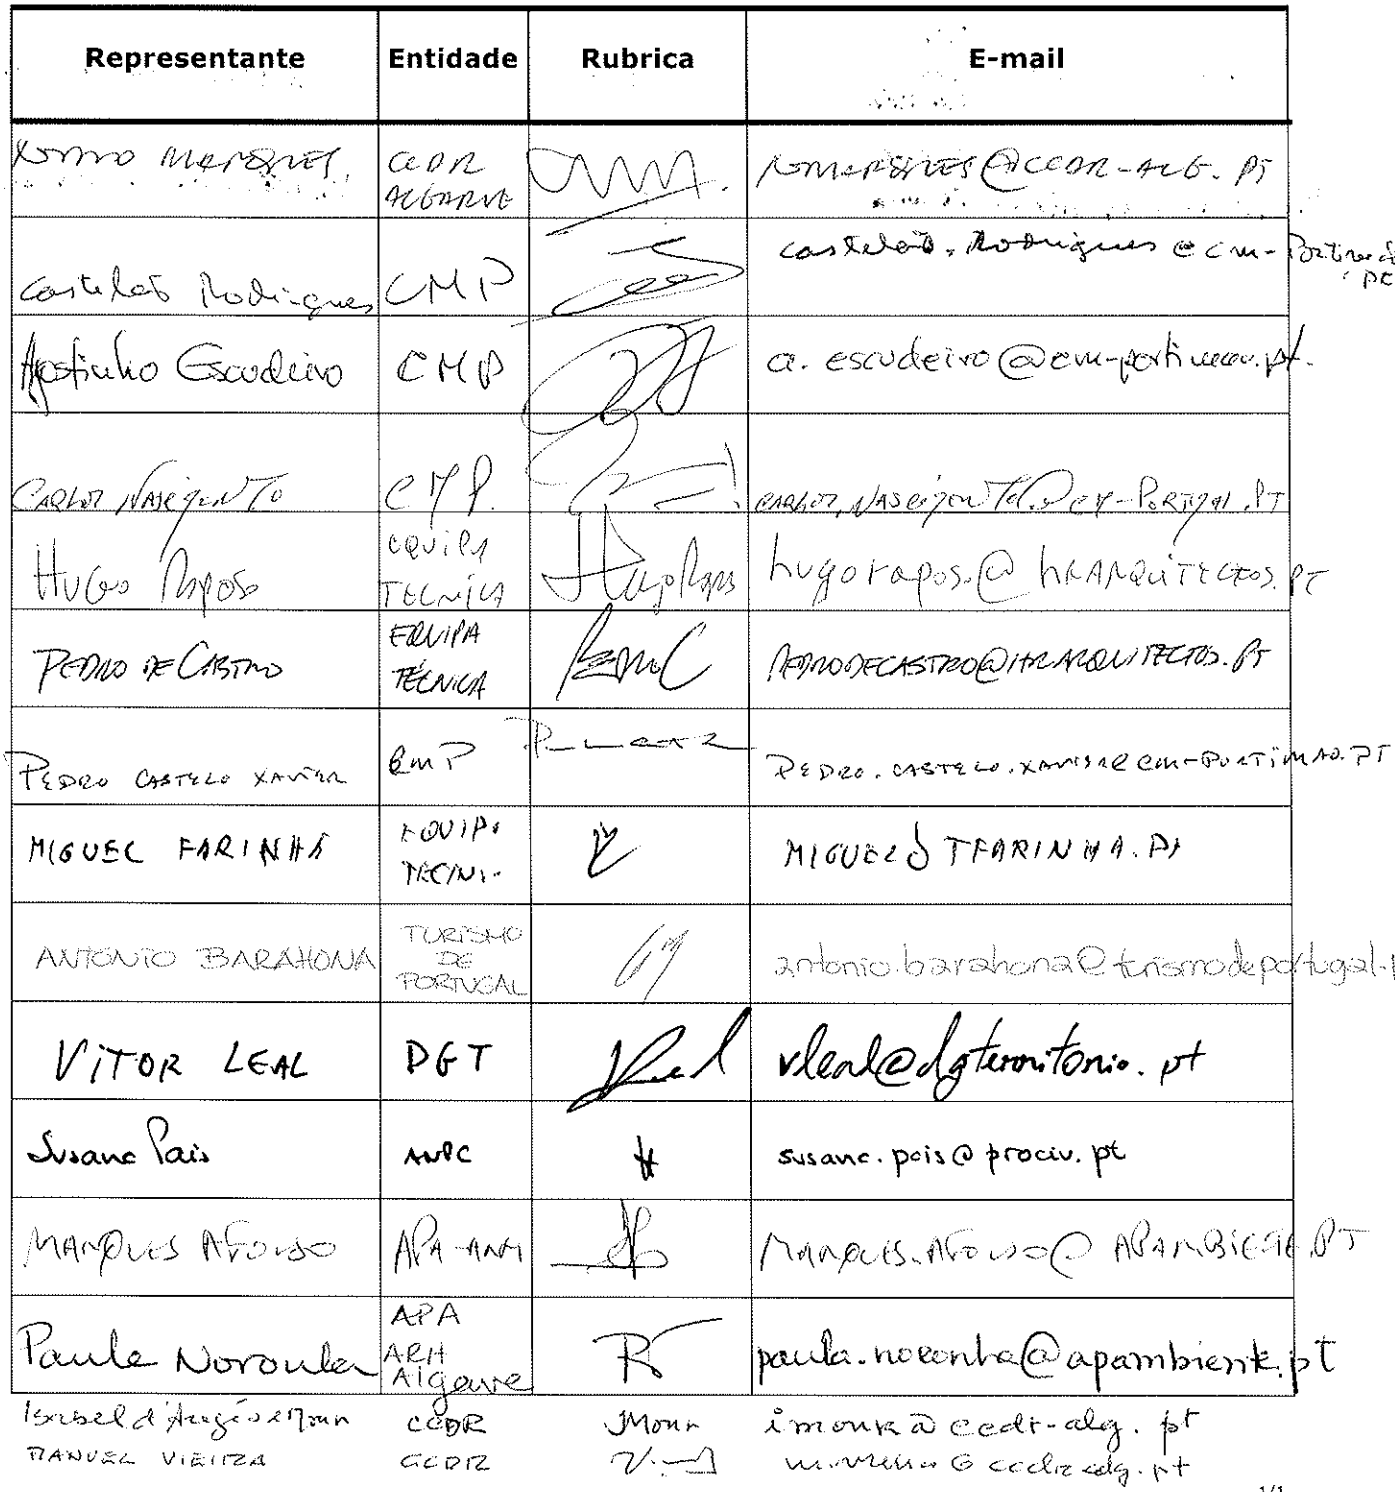 Representante Entidade Rubrica E-mail
Nuno Marques CCDR ALGARVE NOMARQUES@CCDR-ALG.PT
Castelão Rodrigues CMP castelao.Rodrigues@cm-Portimão.pt
Agostinho Escudeiro CMP a.escudeiro@cm-portimao.pt.
CARLOS NASCIMENTO CMP. CARLOS.NASCIMENTO@CM-PORTIMAO.PT
HUGO Raposo EQUIPA TÉCNICA Hugo Rapos hugoraposo@HRARQUITECTOS.PT
PEDRO DE CASTRO EQUIPA TÉCNICA PEDRODECASTRO@HRARQUITECTOS.PT
PEDRO CASTELO XAVIER CMP PEDRO.CASTELO.XAVIER@CM-PORTIMAO.PT
MIGUEL FARINHA EQUIPA TECNI. MIGUEL@TFARINHA.PT
ANTONIO BARAHONA TURISMO DE PORTUGAL antonio.barahona@turismodeportugal.p
VITOR LEAL DGT vleal@dgterritorio.pt
Susana Pais ANPC susana.pais@prociv.pt
MARQUES AFONSO APA-ARH MARQUES.AFONSO@APAMBIENTE.PT
Paula Noronha APA ARH Algarve paula.noronha@apambiente.pt
Isabel d' Moura CCDR IMoura imoura@ccdr-alg.pt
MANUEL VIEIRA CCDR m.vieira@ccdr-alg.pt
1/1